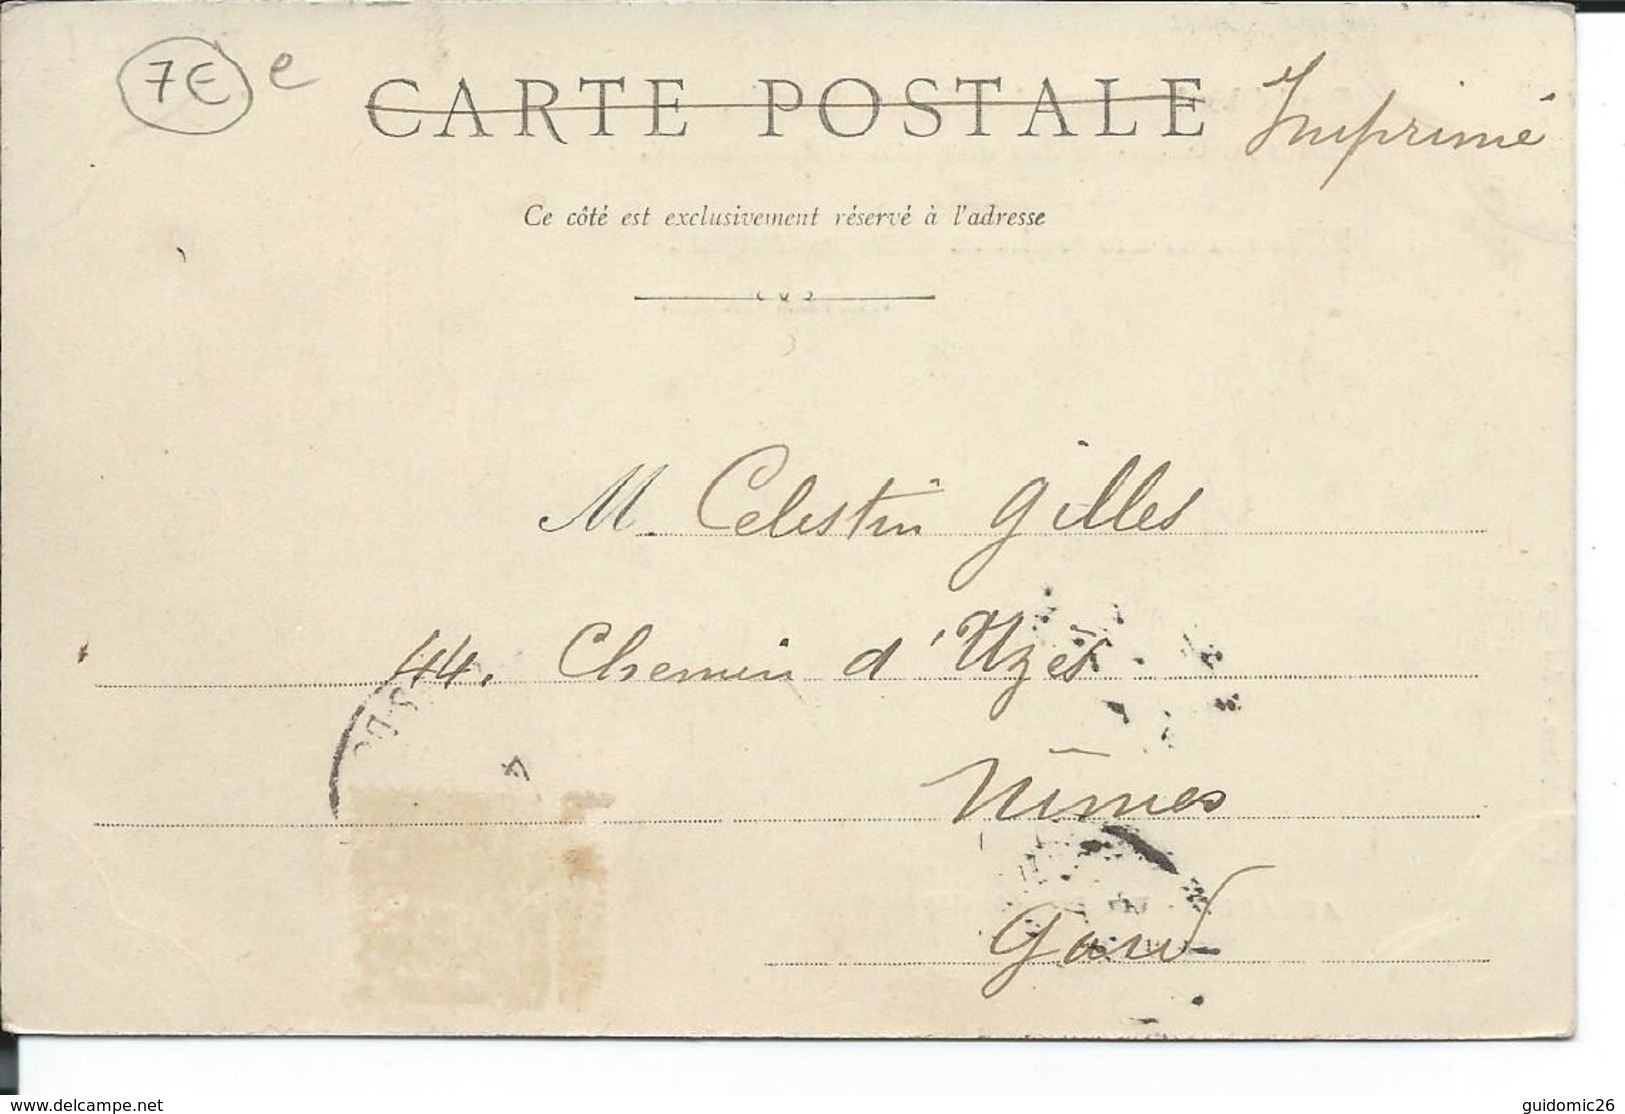 7€ e
CARTE POSTALE Imprimé
Ce côté est exclusivement réservé à l'adresse
M. Celestin Gilles
44. Chemin d'Uzès
Nîmes
Gard
www.delcampe.net guidomic26